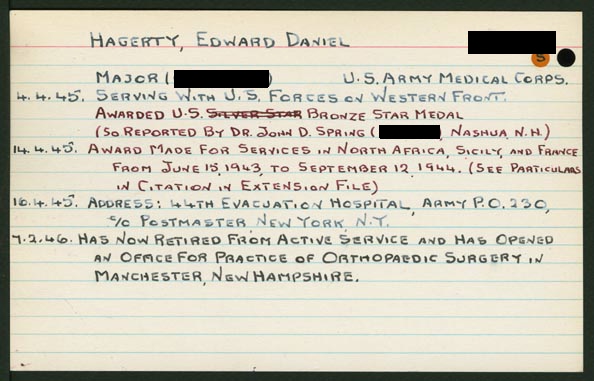 HAGERTY, EDWARD DANIEL
S
MAJOR ( ) U.S. ARMY MEDICAL CORPS.
4.4.45. SERVING WITH U.S. FORCES ON WESTERN FRONT.
AWARDED U.S. SILVER STAR BRONZE STAR MEDAL
(SO REPORTED BY DR. JOHN D. SPRING ( , NASHUA, N.H.)
14.4.45. AWARD MADE FOR SERVICES IN NORTH AFRICA, SICILY, AND FRANCE
FROM JUNE 15, 1943, TO SEPTEMBER 12, 1944. (SEE PARTICULARS
IN CITATION IN EXTENSION FILE)
16.4.45. ADDRESS: 44TH EVACUATION HOSPITAL, ARMY P.O. 230,
c/o POSTMASTER, NEW YORK, N.Y.
7.2.46. HAS NOW RETIRED FROM ACTIVE SERVICE AND HAS OPENED
AN OFFICE FOR PRACTICE OF ORTHOPAEDIC SURGERY IN
MANCHESTER, NEW HAMPSHIRE.